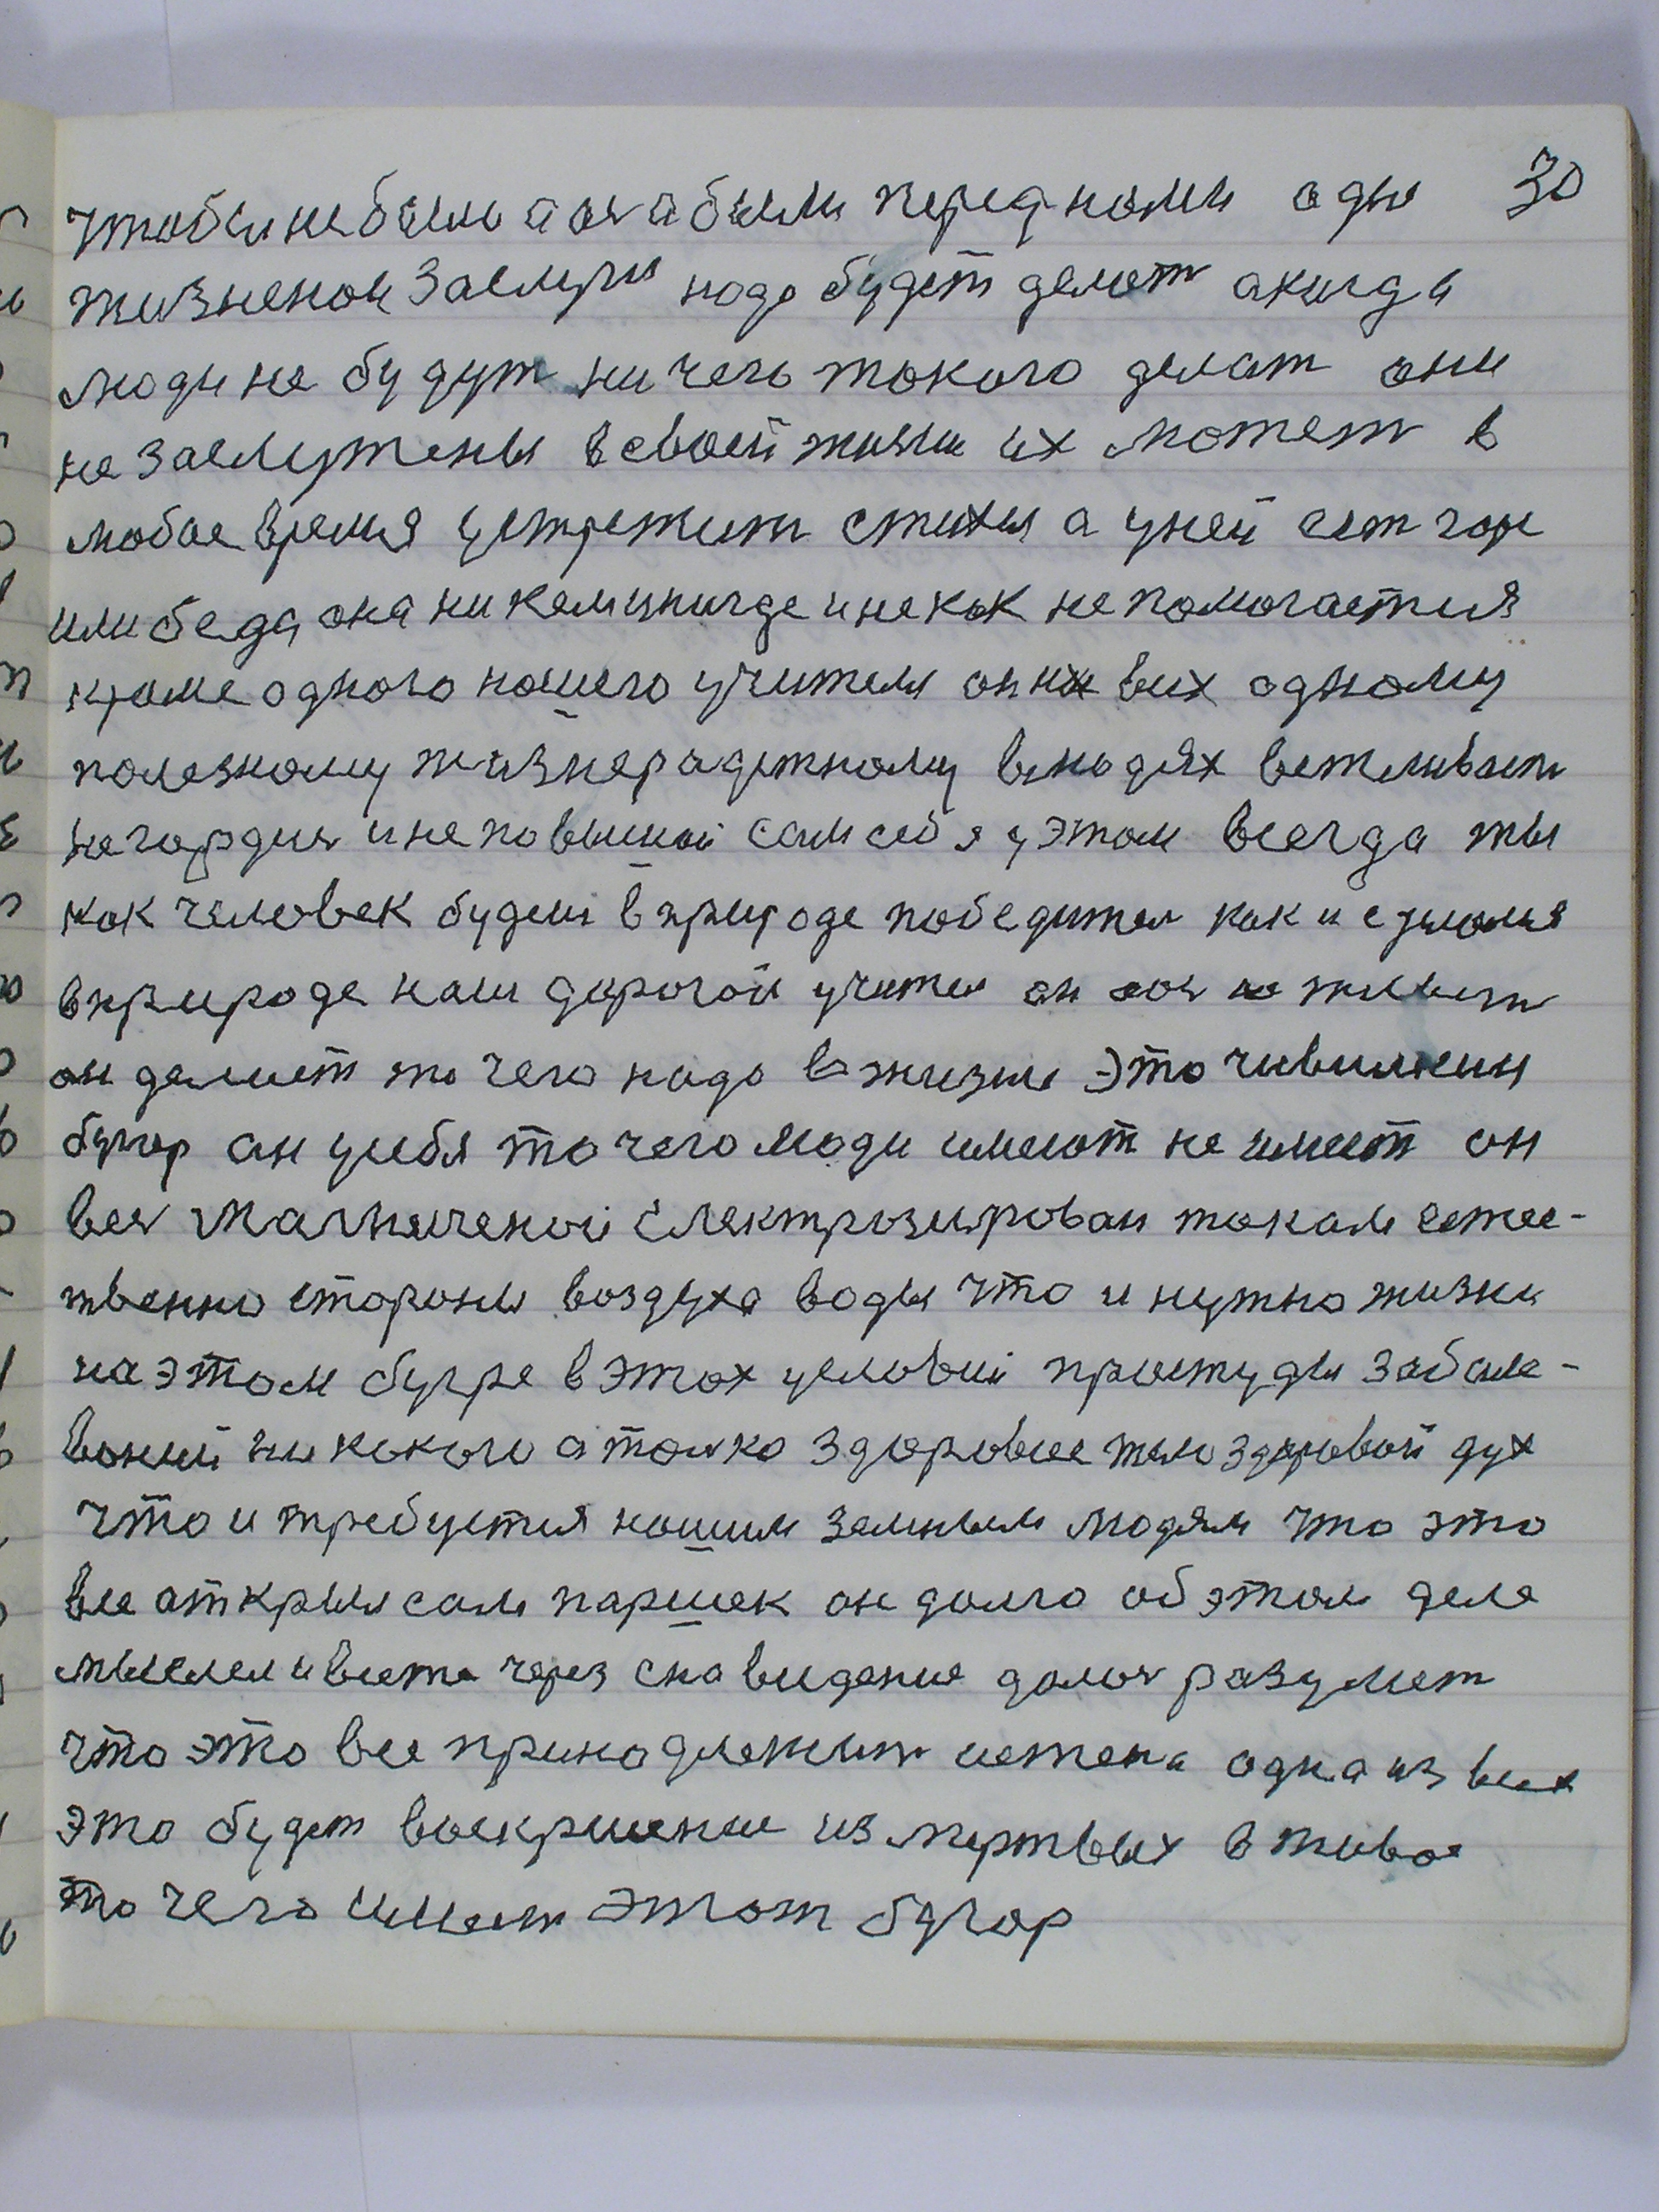 30
чтобы не было а были перед нами одни
жизненой заслуги надо будет делат а когда
люди не будут ничего такого делат они
не заслужены в своей жизни их может в
любое время устрежит стихия а у ней ест горе
или беда она никому нигде и некак не помогается
кроме одного нашего учителя он их всих одному
полезному жизнерадежному в людях вежливаст
не гордис и не повышай сам себя у этом всегда ты
как человек будеш в природе победител как и сделался
в природе наш дорогой учител он живет
он делает то чего надо в жизни это чивилкин
бугор он у себя то чего люди имеют не имеет он
вес магниченой електрозирован током естес-
твенно стороны воздуха воды что и нужно жизни
на этом бугре в этох условий простуды забале-
ваний никокого а толко здоровое тело здоровой дух
что и требуется нашим земным людям что это
все открыл сам паршек он долго об этом деле
мыслел и все через сновидения разумет
что это все принодлежит истена одна из всих
это будет воскришение из мертвых в живое
то чего имеет этот бугор